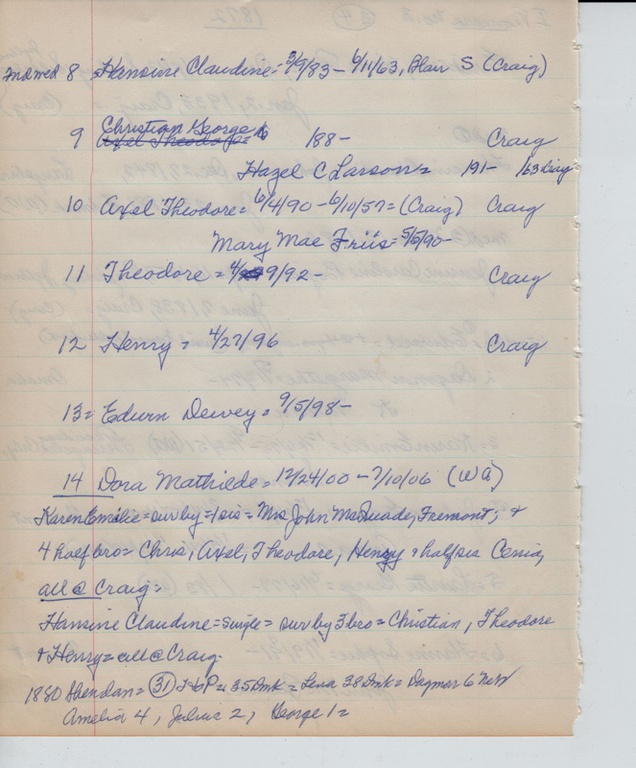 2nd med 8 Hansine Claudine = 5/9/83 - 6/11/63, Blair S (Craig)
9 Christian George 188- Craig
Axel Theodore =
Hazel C Larson = 191- 163 Craig
10 Axel Theodore = 6/4/90 - 6/10/57 = (Craig) Craig
Mary Mae Friis = 5/5/90-
11 Theodore = 4/29/92 - Craig
12 Henry = 4/27/96 Craig
13 = Edwin Dewey = 9/5/98-
14 Dora Mathilde = 12/24/00 - 7/10/06 (WA)
Karen Emilie = sur by = 1 sis = Mrs John McQuade, Fremont; +
4 half bro = Chris, Axel, Theodore, Henry + half sis Cenia,
all @ Craig =
Hansine Claudine = single = sur by 3 bro = Christian, Theodore
+ Henry = all @ Craig.
1880 Sheridan = (31) = 35 Dmk = Lena 38 Dmk = Dagmar 6 Nebr
Amelia 4, Julius 2, George 1 =